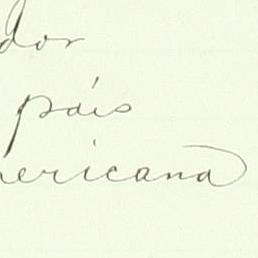 dor
país
ericana